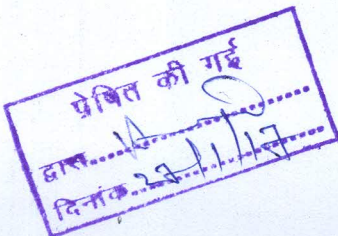 प्रेषित की गई
द्वारा..............
दिनांक 27/1/17